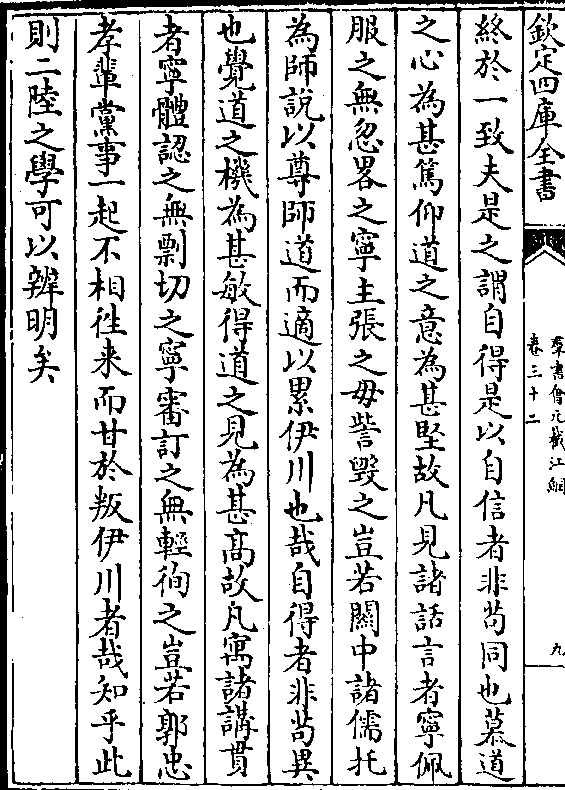 欽定四庫全書
羣書會元截江綱
卷三十二
九
終於一致夫是之謂自得是以自信者非苟同也慕道
之心為甚篤仰道之意為甚堅故凡見諸話言者寧佩
服之無忽畧之寧主張之毋訾毀之豈若關中諸儒托
為師說以尊師道而適以累伊川也哉自得者非苟異
也覺道之機為甚敏得道之見為甚髙故凡寓諸講貫
者寧體認之無剽切之寧審訂之無輕徇之豈若郭忠
孝輩黨事一起不相徃来而甘於叛伊川者哉知乎此
則二陸之學可以辨明矣